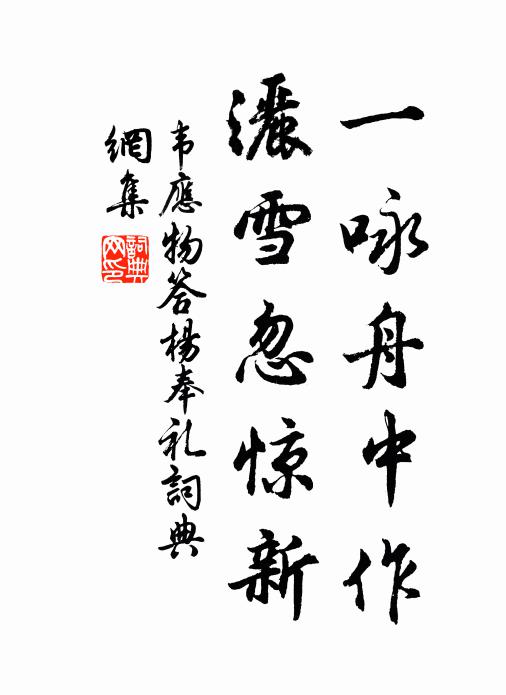 一咏舟中作
灑雪忽惊新
韦應物答楊奉礼詞典
網集
詞典
网印